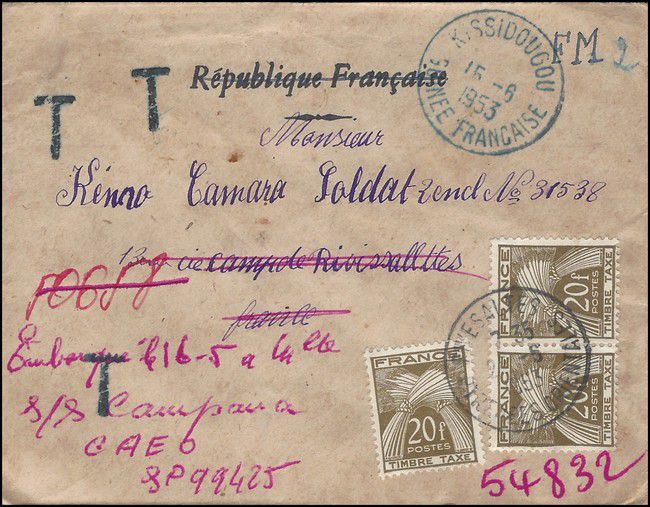 FM 2
KISSIDOUGOU
15 -6
1953
GUINEE FRANCAISE
T T
République Française
Monsieur
Kénro Camara Soldat 2end No 31538
cie camp de Rivissalltes
france
Embarqué le 16-5 a
T
S/S Campana
CAEO
SP 99425
FRANCE
20f
POSTES
TIMBRE TAXE
FRANCE
20f
POSTES
TIMBRE TAXE
FRANCE
20f
POSTES
TIMBRE TAXE
54832